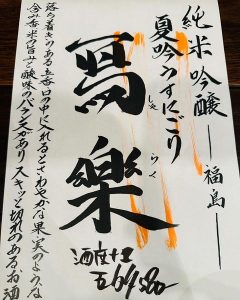 純米吟醸―福島―
夏吟うすにごり
寫樂
しゃ らく
落ち着きのある立香口の中に入れるとさわやかな果実のような
含み香米の旨みと酸味のバランスがありスキッと切れのあるお酒